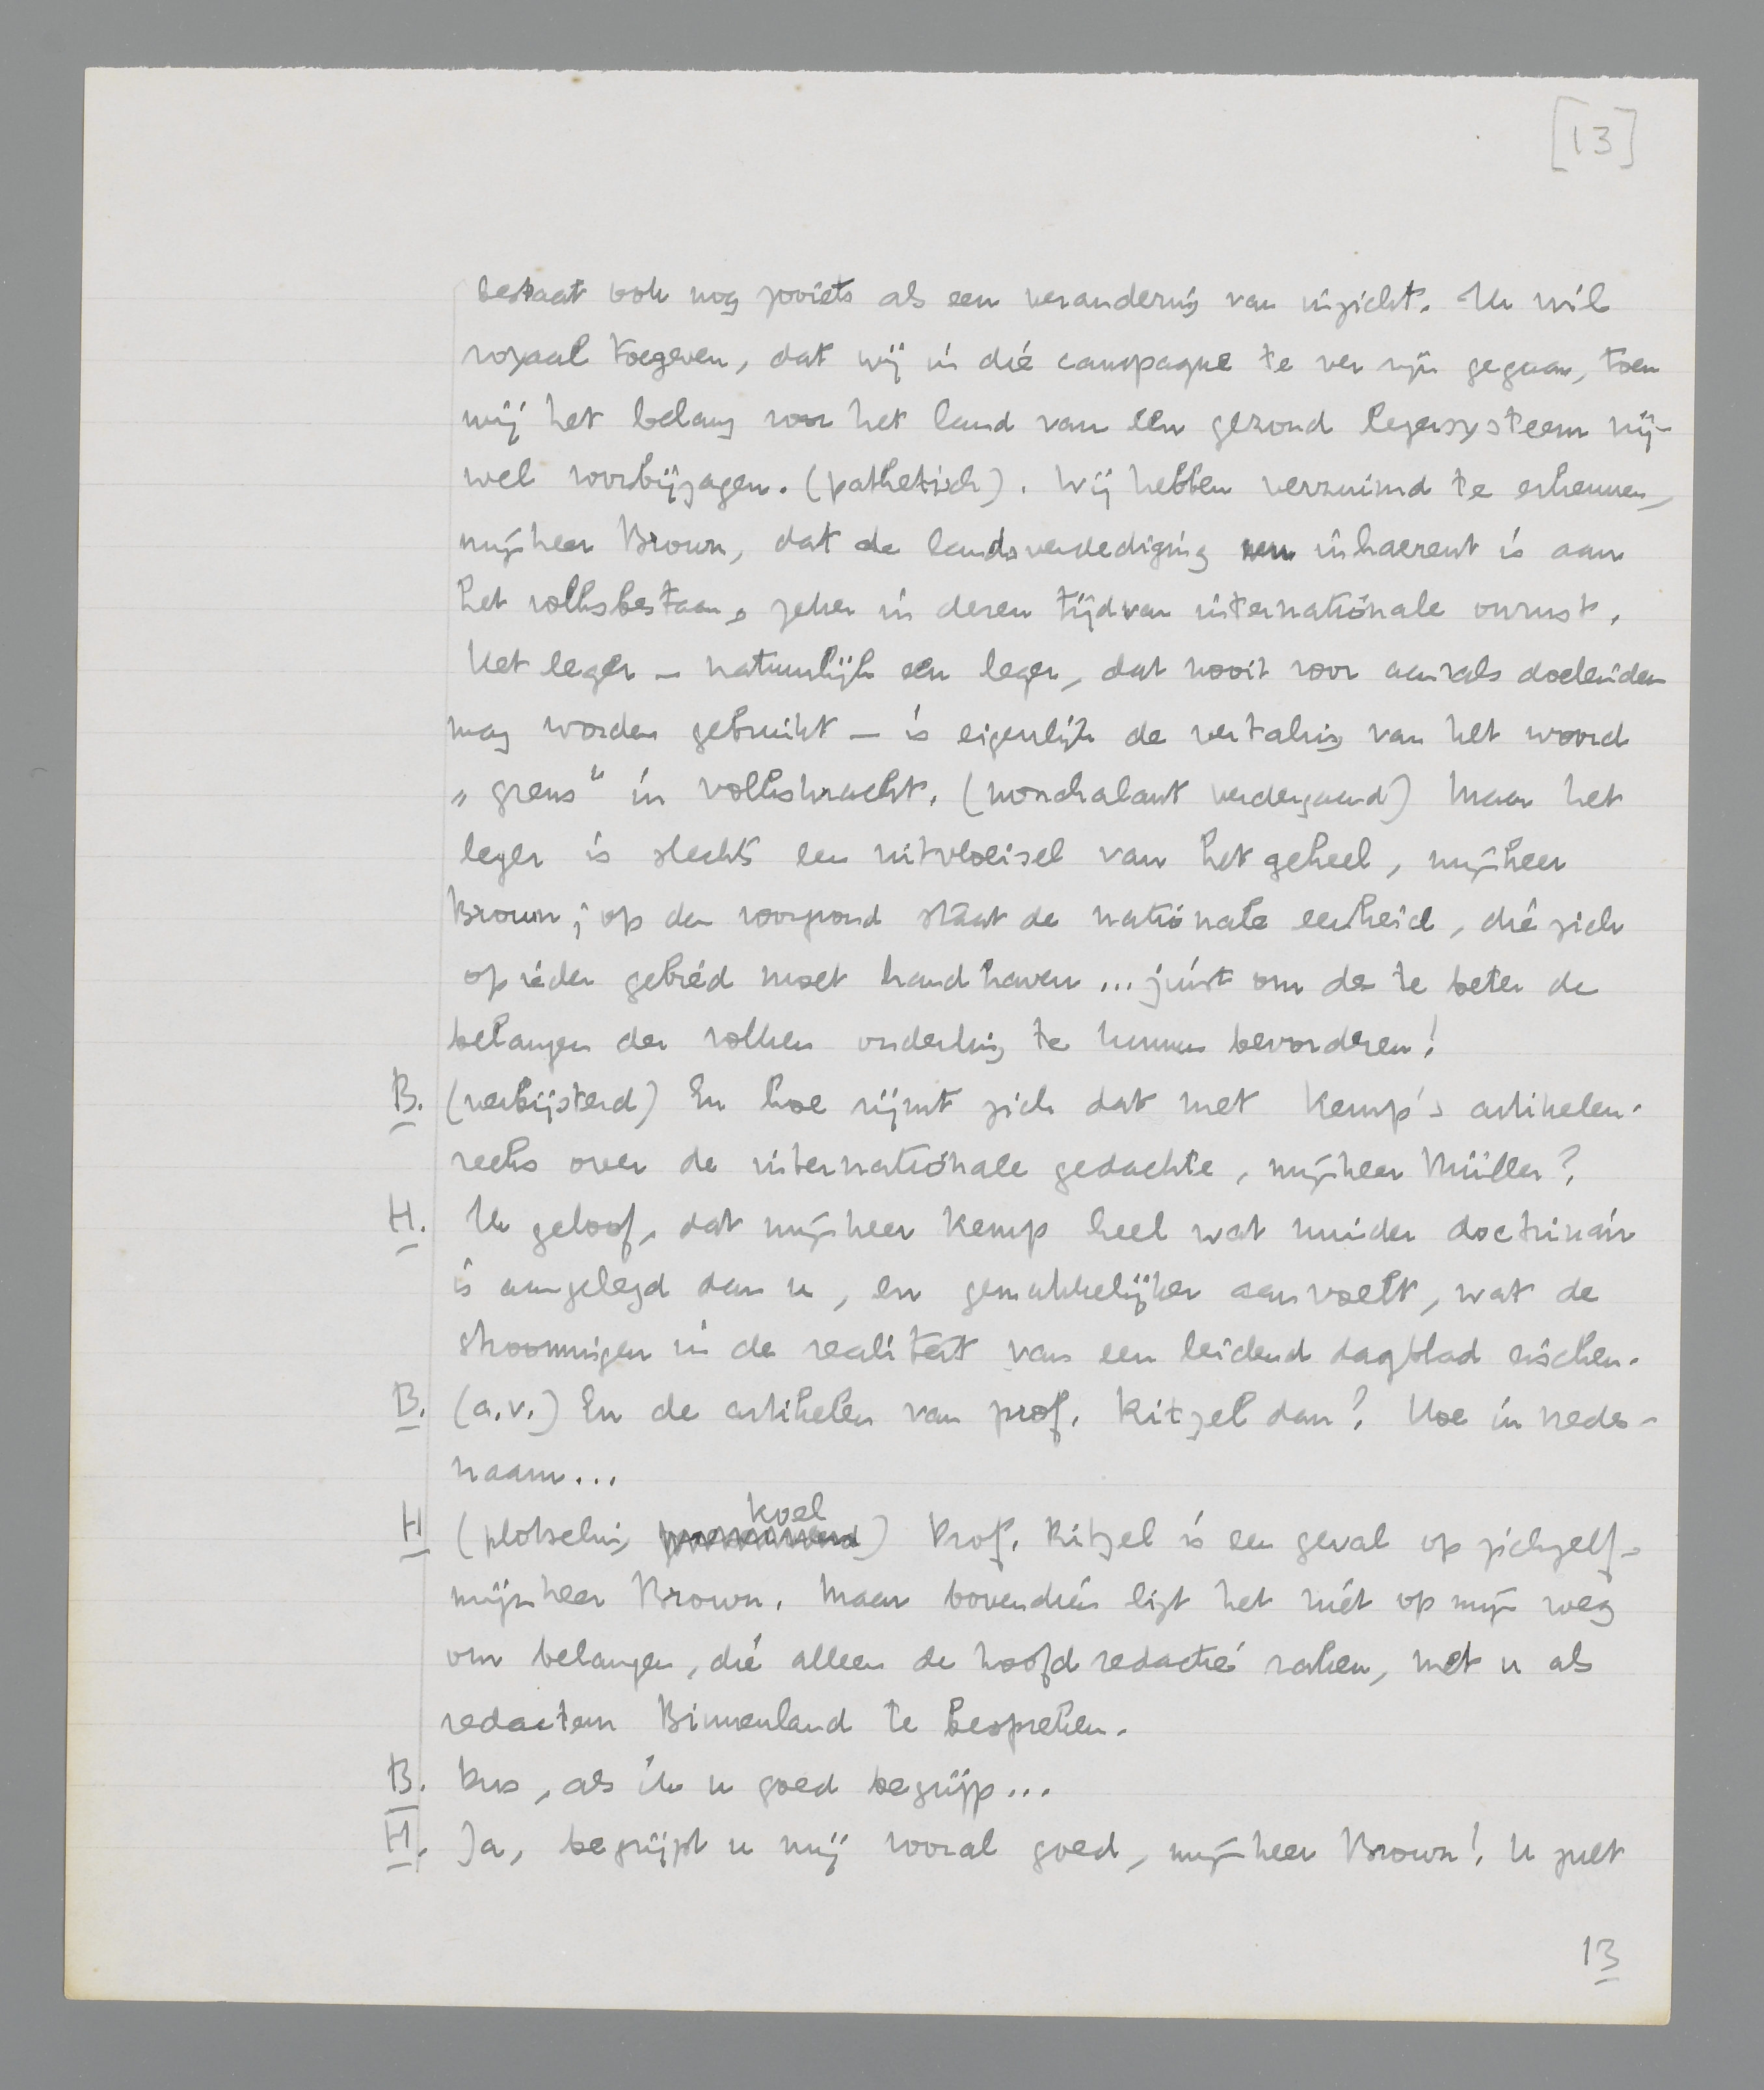 [13]
bestaat ook nog zooiets als een verandering van inzicht. Ik wil
royaal toegeven, dat wij in die campagne te ver zijn gegaan, toen
wij het belang voor het land van een gezond legersysteem vrij-
wel voorbijzagen. (pathetisch). Wij hebben verzuimd te erkennen,
mijnheer Brown, dat de landsverdediging inhaerent is aan
het volksbestaan, zeker in dezen tijd van internationale onrust.
Het leger — natuurlijk een leger, dat nooit voor aanvals doeleinden
mag worden gebruikt — is eigenlijk de vertaling van het woord
„grens" in volkskracht. (nonchalant verdergaand) Maar het
leger is slechts een uitvloeisel van het geheel, mijnheer
Brown; op den voorgrond staat de nationale eenheid, die zich
op ieder gebied moet handhaven... juist om des te beter de
belangen der volken onderling te kunnen bevorderen!
B. (verbijsterd) En hoe rijmt zich dat met Kemp's artikelen-
reeks over de internationale gedachte, mijnheer Müller?
H. Ik geloof, dat mijnheer Kemp heel wat minder doctrinair
is aangelegd dan u, en gemakkelijker aanvoelt, wat de
stroomingen in de realiteit van een leidend dagblad eischen.
B. (a.v.) En de artikelen van prof. Ritzel dan? Hoe in vredes-
naam...
H (plotseling koel) Prof. Ritzel is een geval op zichzelf,
mijnheer Brown. Maar bovendien ligt het niet op mijn weg
om belangen, die alleen de hoofdredactie raken, met u als
redacteur Binnenland te bespreken.
B. Dus, als ik u goed begrijp...
H. Ja, begrijpt u mij vooral goed, mijnheer Brown! U zult
13